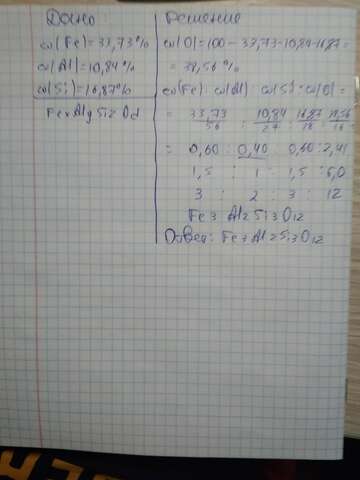 Дано:
ω(Fe)=33,73%
ω(Al)=10,84%
ω(Si)=16,87%
FexAlySizOd
Решение
ω(O)=100-33,73-10,84-16,87=
= 38,56 %
ω(Fe) : ω(Al) : ω(Si) : ω(O) =
= 33,73/56 : 10,84/27 : 16,87/28 : 38,56/16
= 0,60 : 0,40 0,60 : 2,41
1,5 : 1 : 1,5 : 6,0
3 : 2 : 3 : 12
Fe3Al2Si3O12
Ответ: Fe3Al2Si3O12